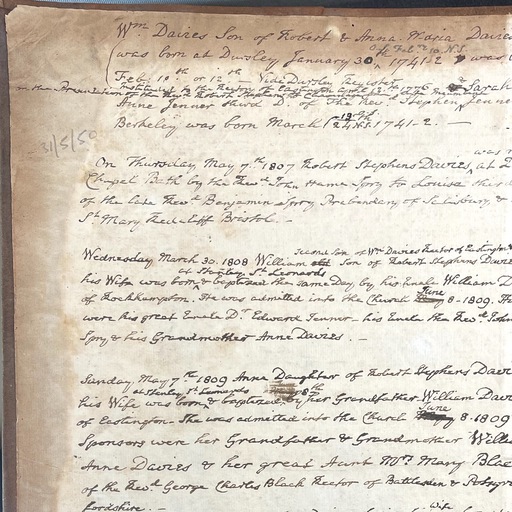 Wm. Davies Son of Robert & Anna Maria Davies
was born at Dursley January 30 1741-2 was
or Feb. 10 N.S.
Feb. 10th or 12th - Vide Dursley Register Sarah
Anne Jenner third D. of The Revd. Stephen Jenner
Berkeley was born March 13th 24 N.S. 1741-2. -
31/5/50
was
On Thursday, May 7th. 1807 Robert Stephens Davies, at
Chapel Bath by the Revd. John Hume Spry to Louisa third
of the late Revd. Benjamin Spry Prebendary of Salisbury, &
St. Mary Redcliff Bristol. -
Second Son of Wm Davies Rector of Eastington
Wednesday March 30. 1808 William Son of Robert Stephens Davies
at Stanley St. Leonards
his Wife was born & baptized the same Day by his Uncle William D
of Rockhampton. He was admitted into the Church June 8-1809.
were his great Uncle Dr. Edward Jenner - his Uncle the Revd. John
Spry & his Grandmother Anne Davies. -
Sunday. May 7th. 1809 Anna Daughter of Robert Stephens Davies
at Stanley St. Leonards 8th
his Wife was born, & baptized by her Grandfather William Davies
of Eastington. She was admitted into the Church June 8-1809
Sponsors were her Grandfather & Grandmother Willi
Anne Davies & her great Aunt Mrs. Mary Black
of the Revd. George Charles Black Rector of Battlesden &
fordshire. -
Wife